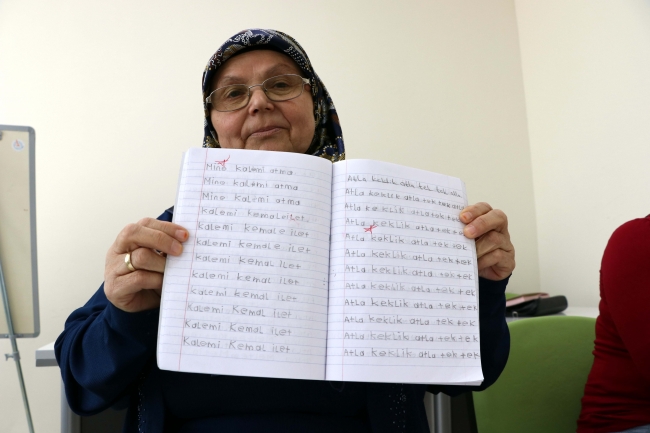 Mine kalemi atma.
Mine kalemi atma
Mine kalemi atma
Kalemi kemale ilet.
kalemi kemale ilet
kalemi kemal ilet
kalemi kemal ilet
kalemi kemal ilet
kalemi kemal ilet
kalemi kemal ilet
Kalemi Kemal ilet
Atla keklik atla tek tek atla.
Atla keklik atla tek tek atla
Atla keklik atla tek tek
Atla keklik atla tek tek
Atla keklik atla tek tek
Atla keklik atla tek tek
Atla keklik atla tek tek
Atla keklik atla tek tek
Atla keklik atla tek tek
Atla keklik atla tek tek
Atla keklik atla tek tek
Atla keklik atla tek tek